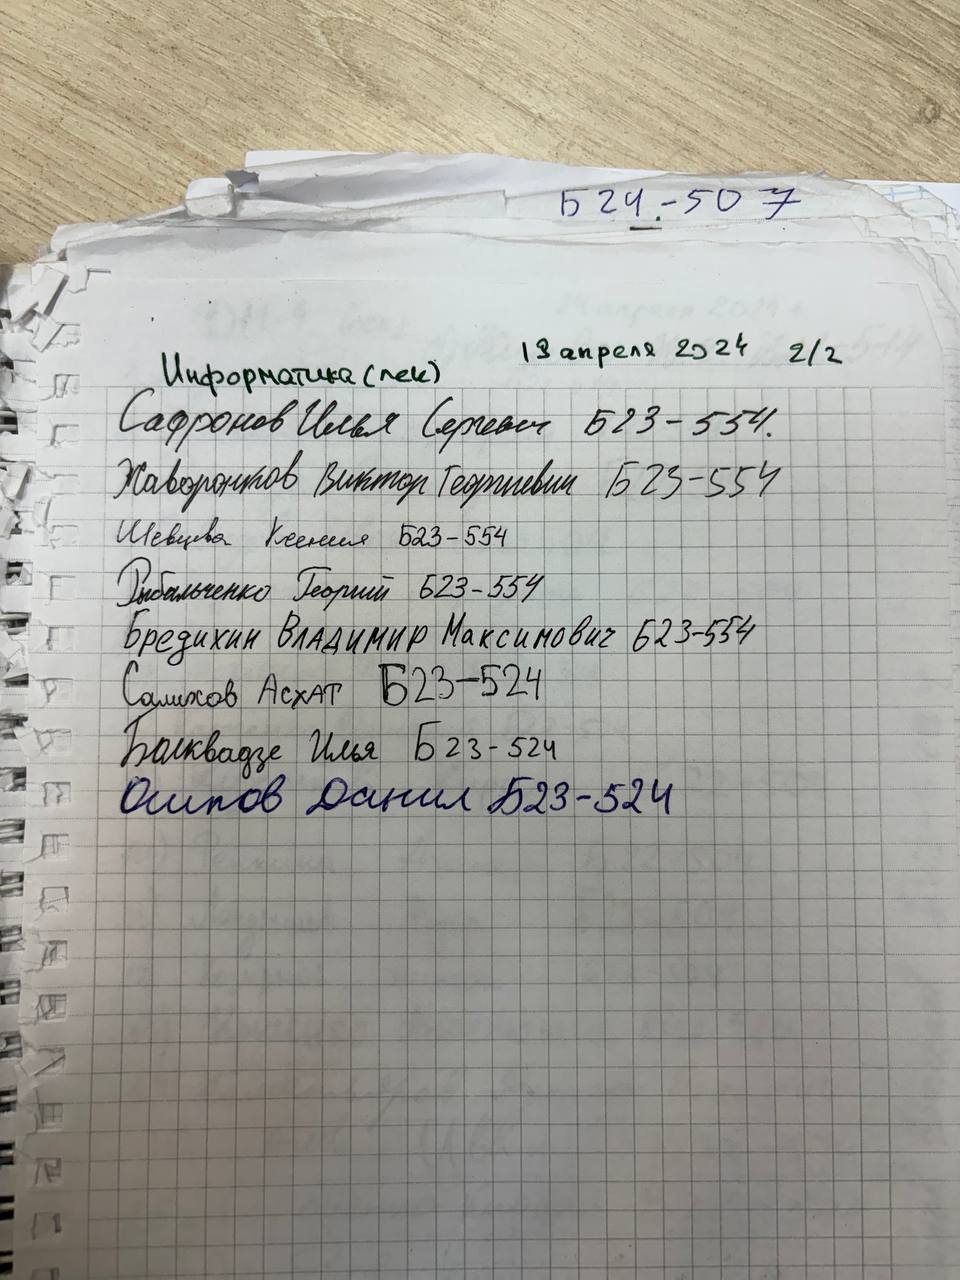 Б24-507
13 апреля 2024 2/2
Информатика (лек)
Сафронов Илья Сергеевич Б23-554.
Жаворонков Виктор Георгиевич Б23-554
Шевцова Ксения Б23-554
Рыбальченко Георгий Б23-554
Бредихин ВЛАДИМИР Максимович Б23-554
Салихов АСХАТ Б23-524
Болквадзе Илья Б23-524
Осипов Данил Б23-524